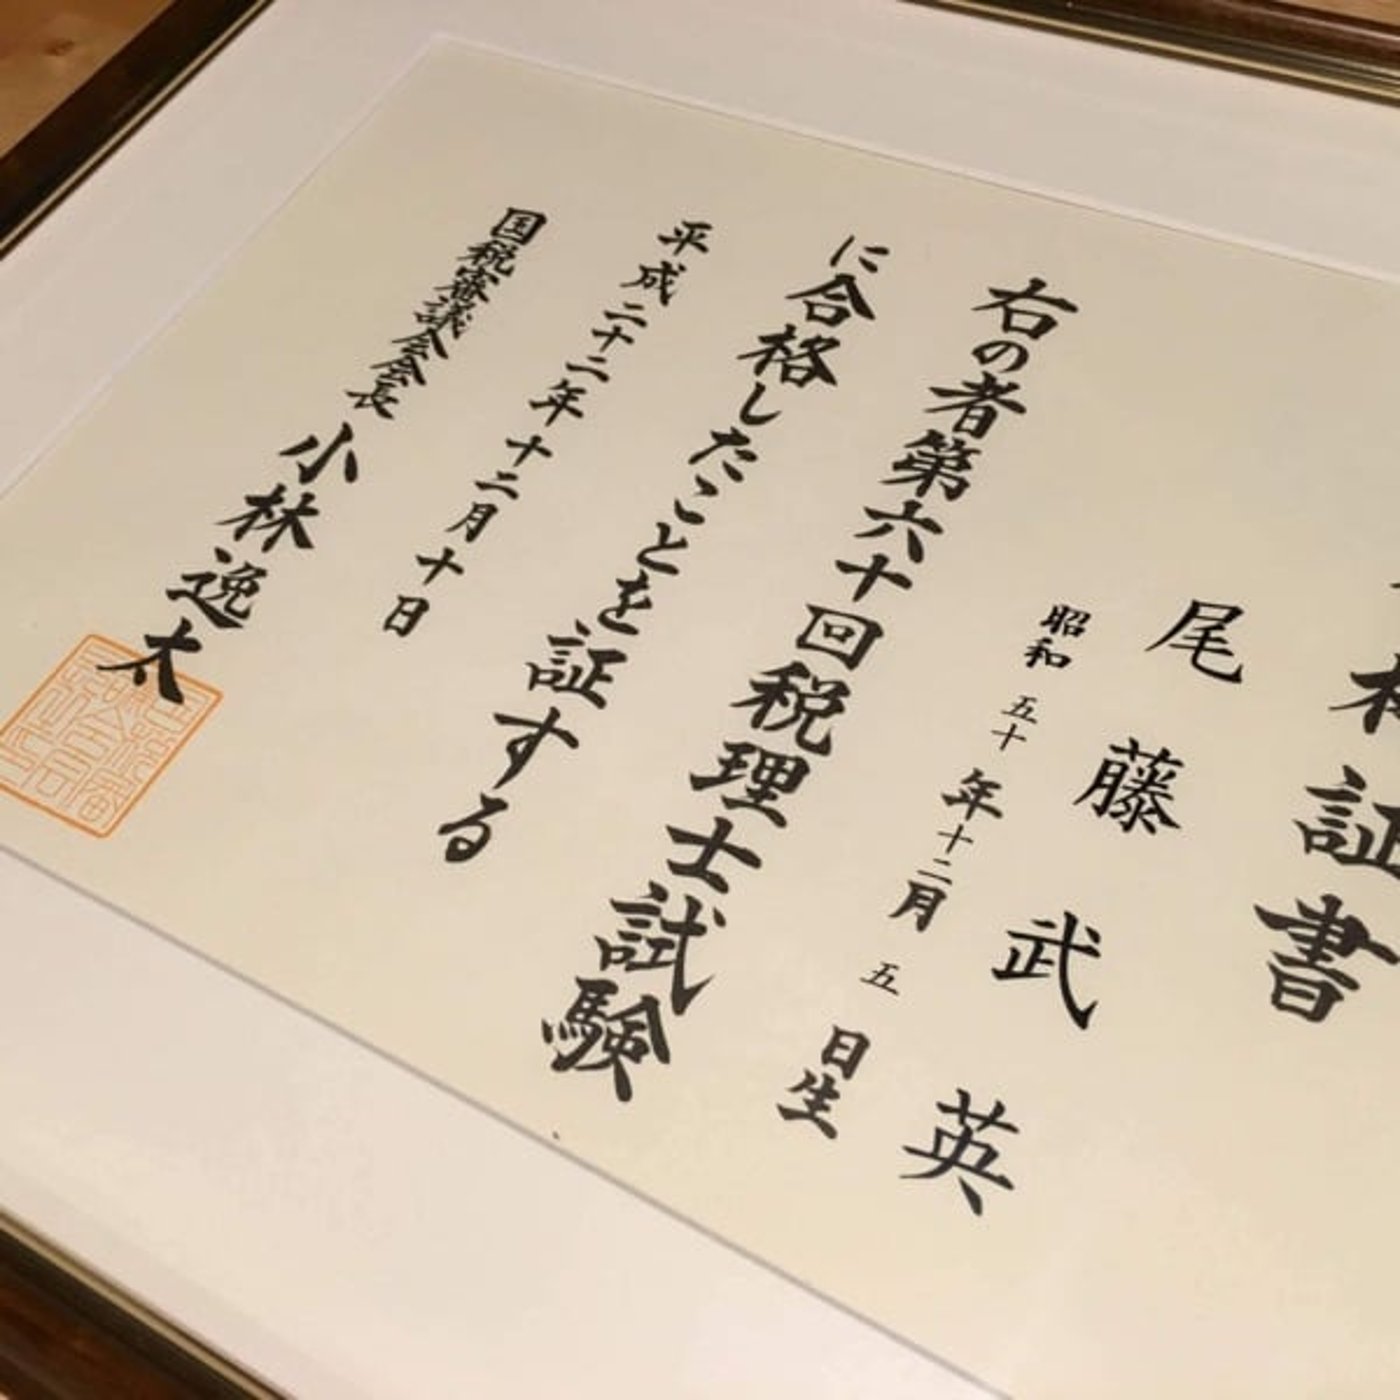 格証書
尾藤武英
昭和五十年十二月五日生
右の者第六十回税理士試験
に合格したことを証する
平成二十二年十二月十日
国税審議会会長 小林逸太